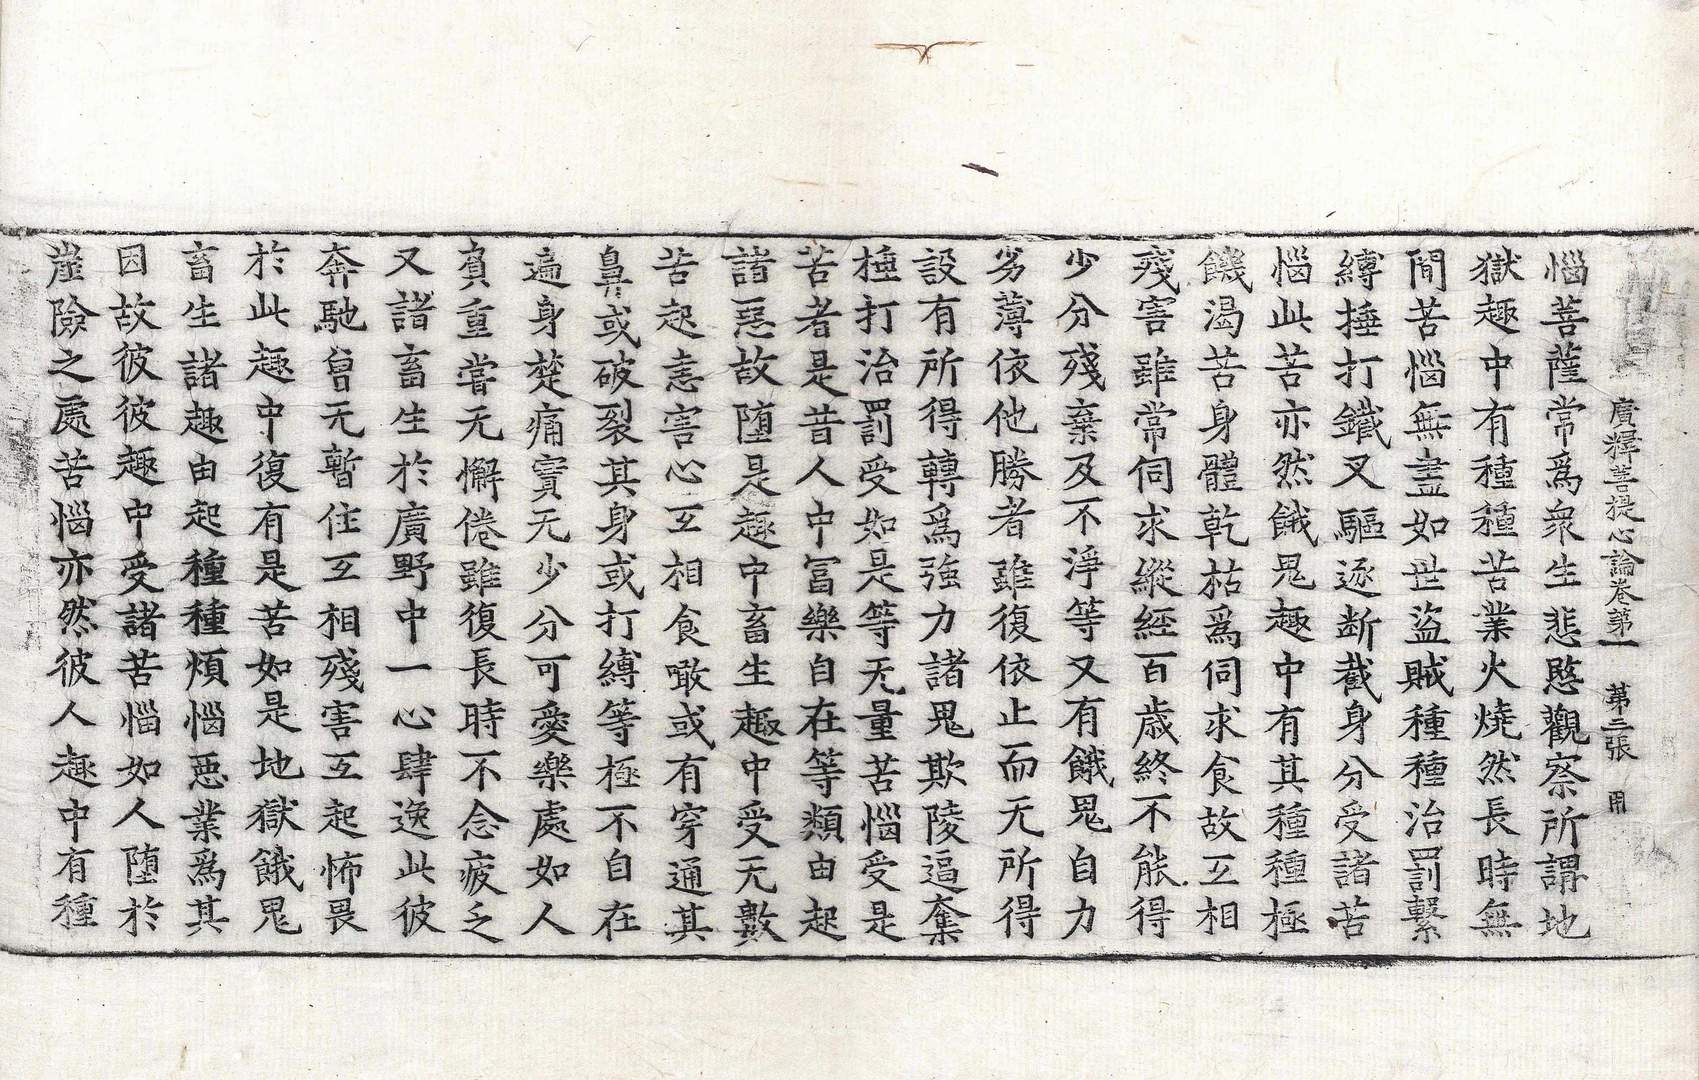 廣釋菩提心論卷第一　第二張　用
惱菩薩常爲衆生悲愍觀察所謂地
獄趣中有種種苦業火燒然長時無
間苦惱無盡如世盜賊種種治罰繫
縛捶打鐵叉驅逐断截身分受諸苦
惱此苦亦然餓鬼趣中有其種種極
饑渴苦身體乾枯爲伺求食故互相
殘害雖常伺求縱經百歲終不能得
少分殘棄及不淨等又有餓鬼自力
劣薄依他勝者雖復依止而无所得
設有所得轉爲强力諸鬼欺陵逼奪
捶打治罰受如是等无量苦惱受是
苦者是昔人中冨樂自在等類由起
諸惡故堕是趣中畜生趣中受无數
苦起恚害心互相食噉或有穿通其
鼻或破裂其身或打縛等極不自在
遍身楚痛實无少分可愛樂處如人
負重嘗无懈倦雖復長時不念疲乏
又諸畜生於廣野中一心肆逸此彼
奔馳曾无暫住互相殘害互起怖畏
於此趣中復有是苦如是地獄餓鬼
畜生諸趣由起種種煩惱惡業爲其
因故彼彼趣中受諸苦惱如人堕於
崖險之處苦惱亦然彼人趣中有種